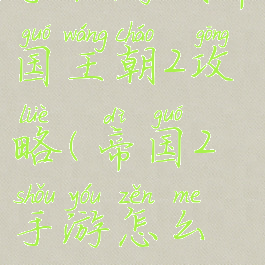 guó wáng cháo gōng
国王朝2攻
lüè dì guó
略(帝国2
shǒu yóu zěn me
手游怎么